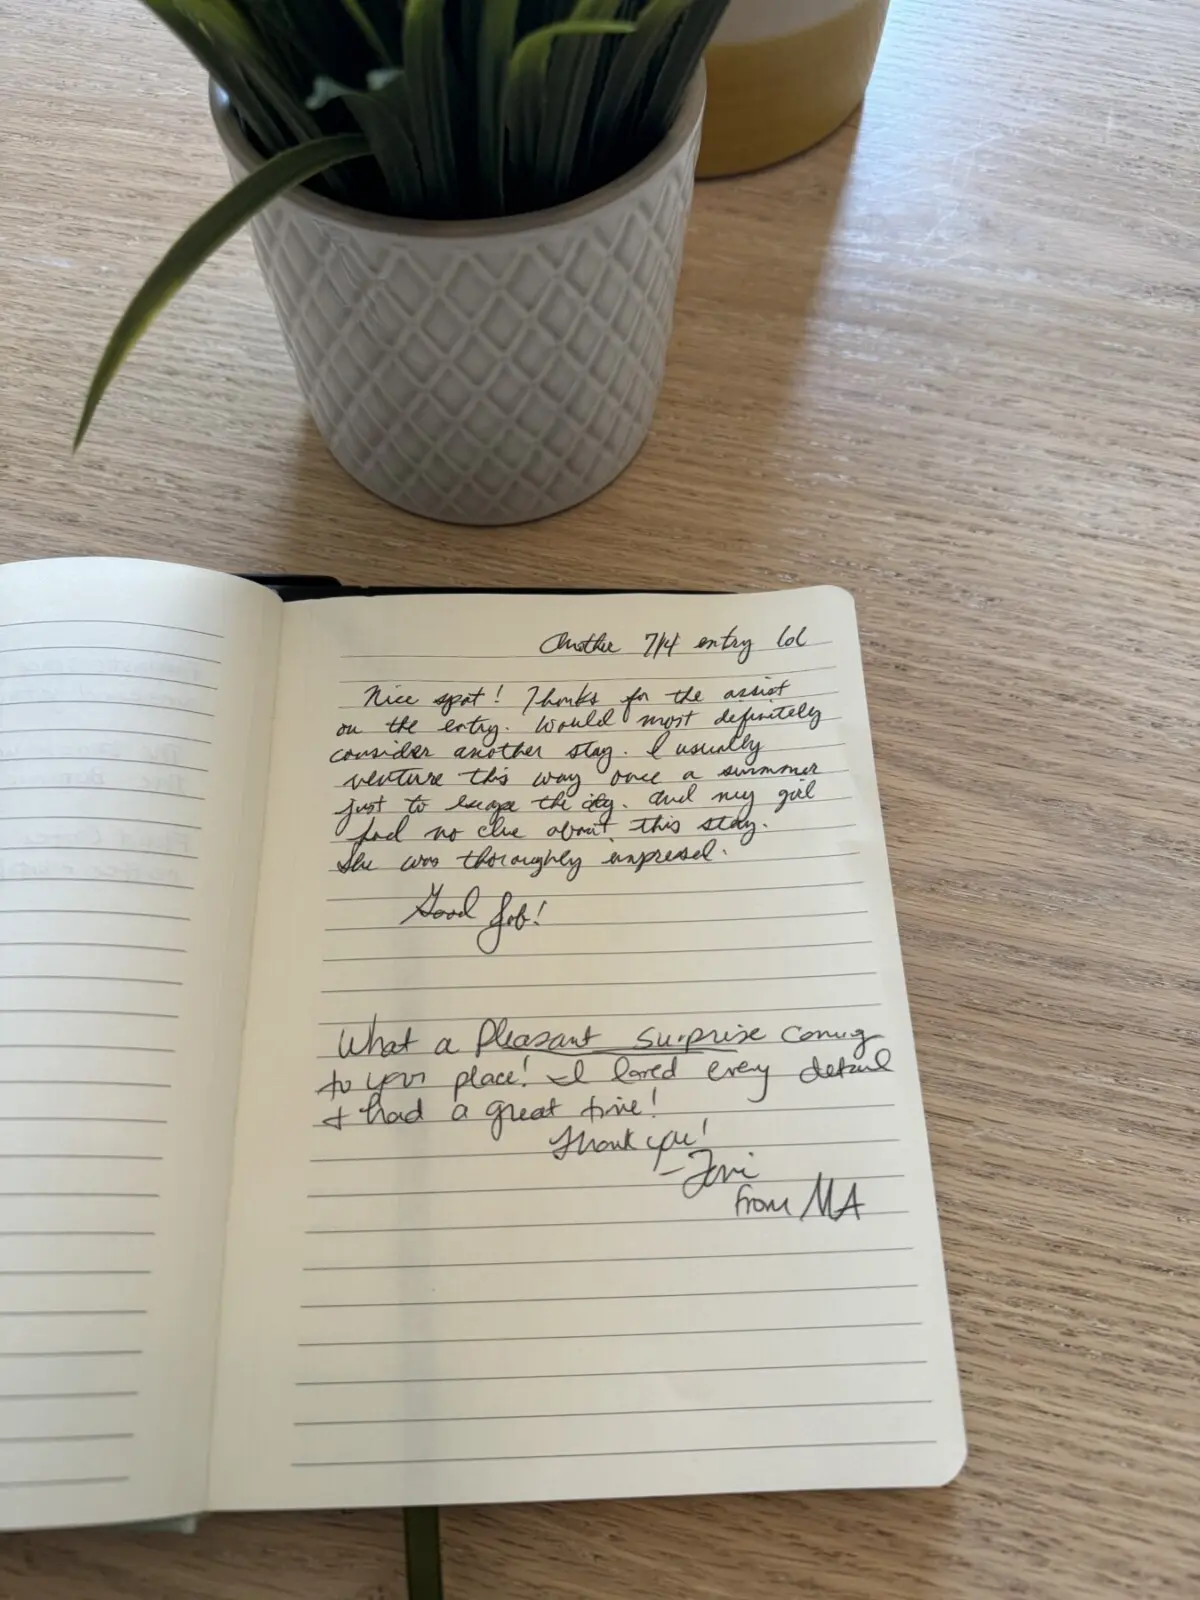 Another 7/4 entry lol
Nice spot! Thanks for the assist
on the entry. Would most definitely
consider another stay. I usually
venture this way once a summer
just to escape the city. And my girl
had no clue about this stay.
She was thoroughly impressed.
Good Job!
What a Pleasant surprise coming
to your place! I loved every detail
& had a great time!
Thank you!
from MA